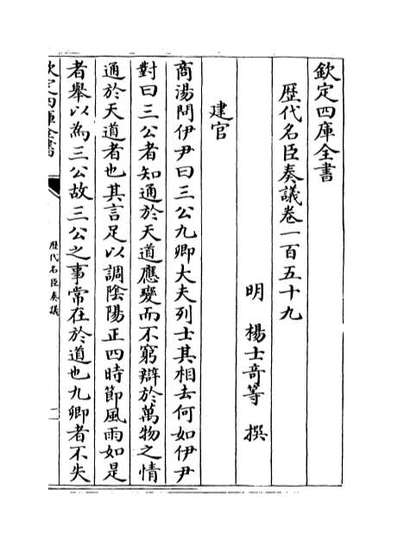 欽定四庫全書
歴代名臣奏議卷一百五十九
明 楊士竒等 撰
建官
商湯問伊尹曰三公九卿大夫列士其相去何如伊尹
對曰三公者知通於天道應變而不窮辯於萬物之情
通於天道者也其言足以調隂陽正四時節風雨如是
者舉以為三公故三公之事常在於道也九卿者不失
欽定四庫全書
歴代名臣奏議